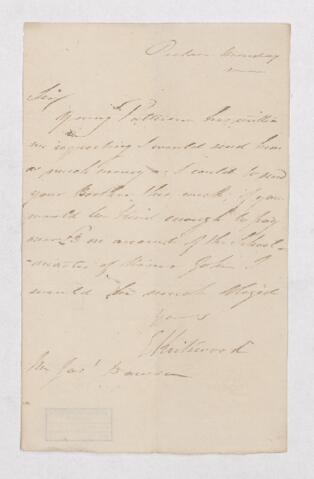 Monday
Sir
Young Pattison has written
me requesting I would send him
as much money as I could to send
your Brother this week, if you
would be kind enough to pay
on account of the School
master of John I
would be much obliged
Yours
E Kirkwood
Mr Jas. Dawson